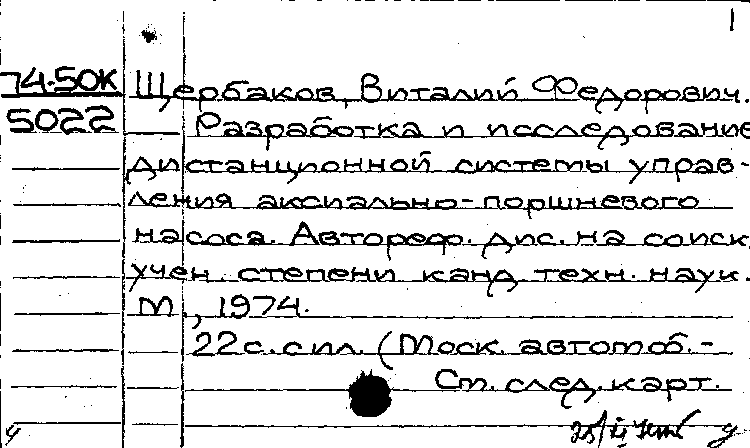 1
74-50К
5022
Щербаков, Виталий Федорович.
Разработка и исследование
дистанционной системы управ-
ления аксиально-поршневого
насоса. Автореф. дис. на соиск.
учен. степени канд. техн. наук.
М., 1974.
22 с. с ил. (Моск. автомоб.-
См. след. карт.